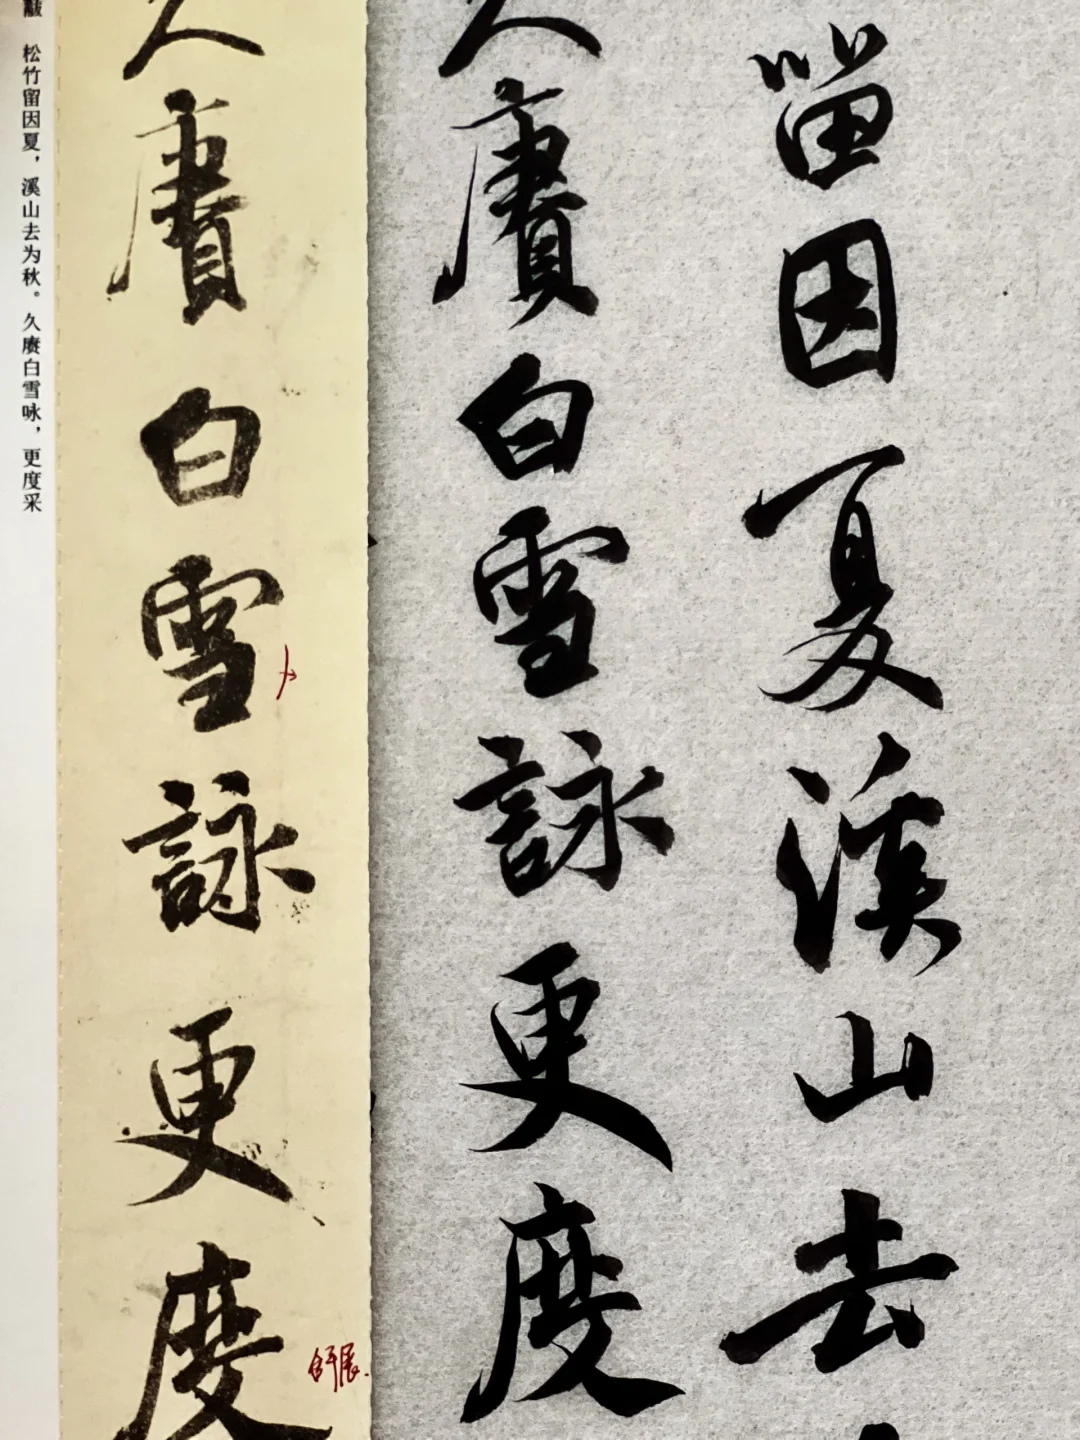 留因夏溪山去
久賡白雪詠更度
久賡白雪詠更度
舒展
松竹留因夏，溪山去为秋。久赓白雪咏，更度采